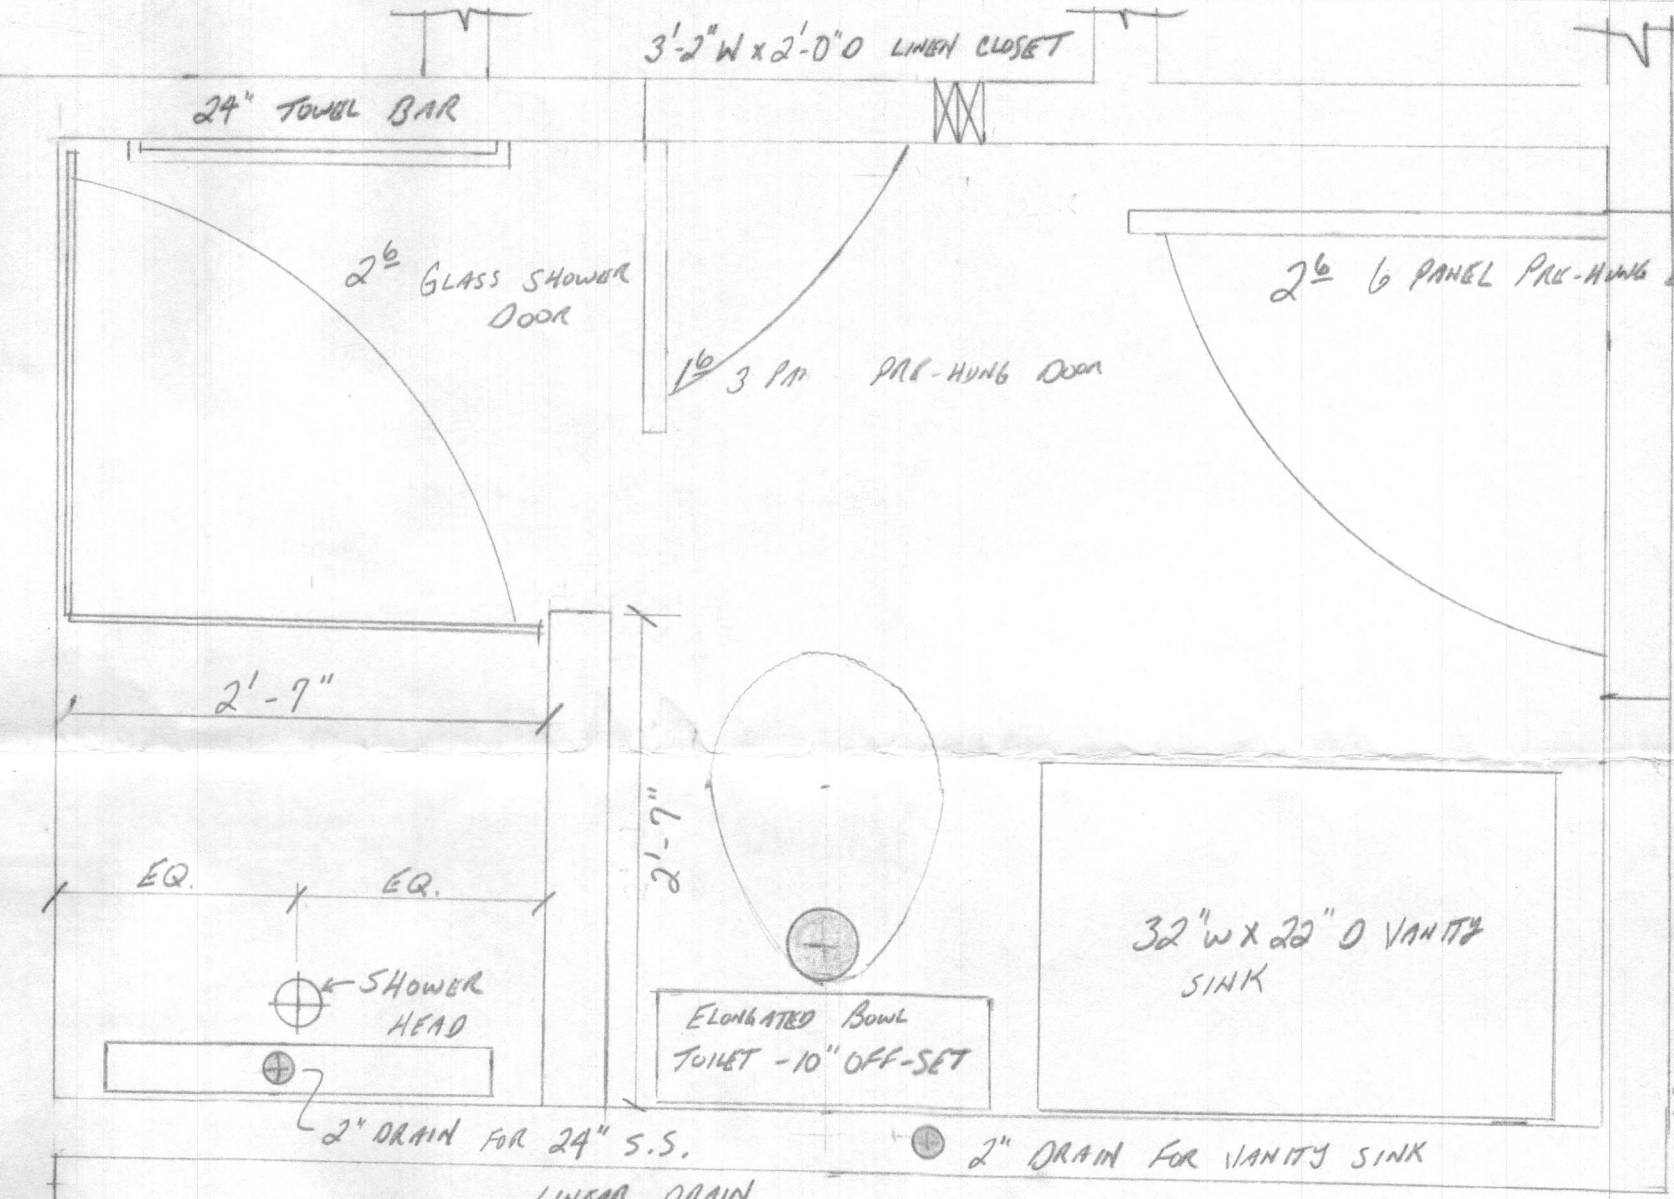 3'-2"W x 2'-0"D LINEN CLOSET
24" TOWEL BAR
2⁶ GLASS SHOWER
DOOR
2⁶ 6 PANEL PRE-HUNG
1⁶ 3 PRE-HUNG DOOR
2'-7"
2'-7"
EQ. EQ.
SHOWER
HEAD
ELONGATED BOWL
TOILET -10" OFF-SET
32"W X 22" D VANITY
SINK
2" DRAIN FOR 24" S.S.
LINEAR DRAIN
2" DRAIN FOR VANITY SINK